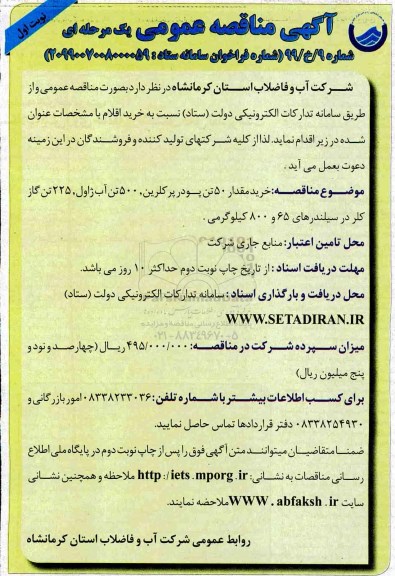 نوبت اول
آگهی مناقصه عمومی یک مرحله ای
شماره ۹/خ/۹۹ (شماره فراخوان سامانه ستاد : ۲۰۹۹۰۰۷۰۰۸۰۰۰۰۵۹)
شرکت آب و فاضلاب استان کرمانشاه در نظر دارد بصورت مناقصه عمومی و از
طریق سامانه تدارکات الکترونیکی دولت (ستاد) نسبت به خرید اقلام با مشخصات عنوان
شده در زیر اقدام نماید. لذا از کلیه شرکتهای تولید کننده و فروشندگان در این زمینه
دعوت بعمل می آید.
موضوع مناقصه: خرید مقدار ۵۰ تن پودر پرکلرین، ۵۰۰ تن آب ژاول، ۲۲۵ تن گاز
کلر در سیلندرهای ۶۵ و ۸۰۰ کیلوگرمی.
محل تامین اعتبار: منابع جاری شرکت
مهلت دریافت اسناد : از تاریخ چاپ نوبت دوم حداکثر ۱۰ روز می باشد.
محل دریافت و بارگذاری اسناد : سامانه تدارکات الکترونیکی دولت (ستاد)
WWW.SETADIRAN.IR
میزان سپرده شرکت در مناقصه: ۴۹۵/۰۰۰/۰۰۰ ریال (چهارصد و نود و
پنج میلیون ریال)
برای کسب اطلاعات بیشتر با شماره تلفن: ۰۸۳۳۸۲۳۳۰۳۶ امور بازرگانی و
۰۸۳۳۸۲۵۴۹۳۰ دفتر قراردادها تماس حاصل نمایید.
ضمنا متقاضیان میتوانند متن آگهی فوق را پس از چاپ نوبت دوم در پایگاه ملی اطلاع
رسانی مناقصات به نشانی: http://iets.mporg.ir ملاحظه و همچنین نشانی
سایت WWW.abfaksh.ir ملاحضه نمایند.
روابط عمومی شرکت آب و فاضلاب استان کرمانشاه